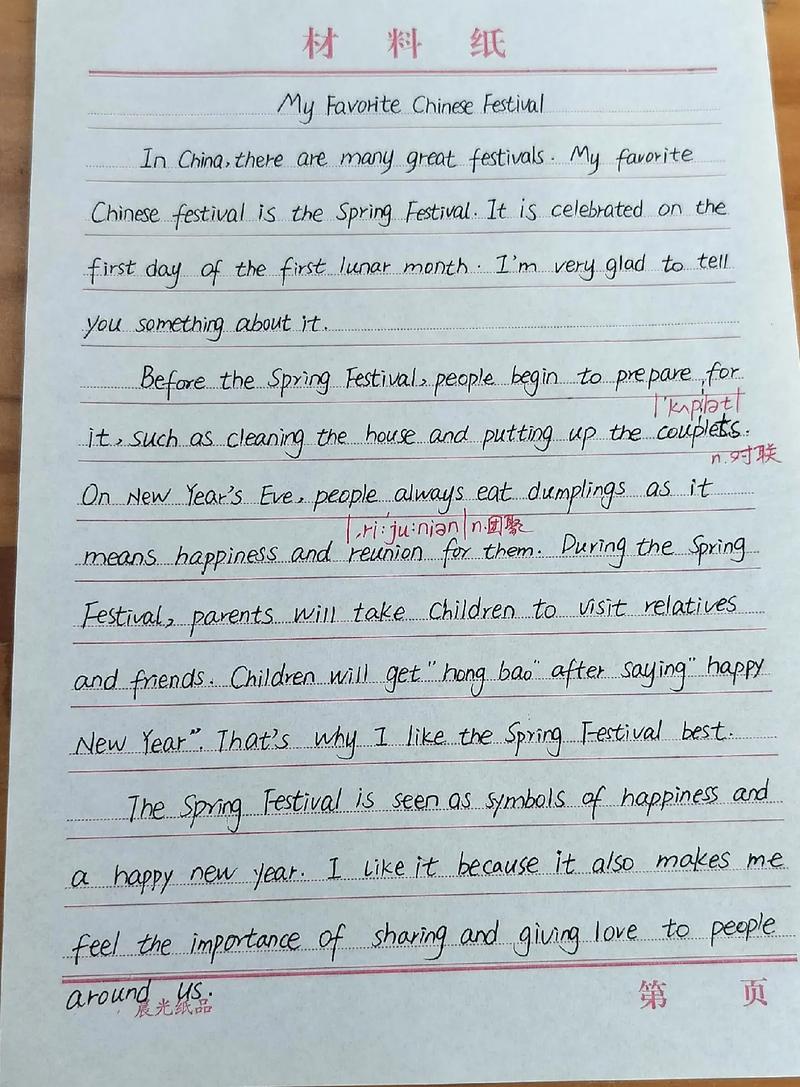 材 料 纸
My Favorite Chinese Festival
In China, there are many great festivals. My favorite
Chinese festival is the Spring Festival. It is celebrated on the
first day of the first lunar month. I'm very glad to tell
you something about it.
Before the Spring Festival, people begin to prepare for
|'kʌplət|
it, such as cleaning the house and putting up the couplets.
n.对联
On New Year's Eve, people always eat dumplings as it
|,ri:'ju:niən| n.团聚
means happiness and reunion for them. During the Spring
Festival, parents will take children to visit relatives
and friends. Children will get "hong bao" after saying "happy
New Year". That's why I like the Spring Festival best.
The Spring Festival is seen as symbols of happiness and
a happy new year. I like it because it also makes me
feel the importance of sharing and giving love to people
around us.
晨光纸品
第 页